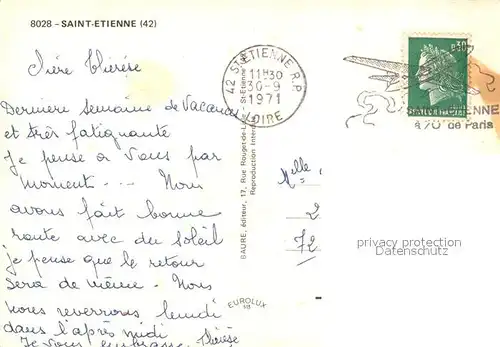 8028 - SAINT-ETIENNE (42)
Dernière semaine de Vacances
et très fatiguante
Je pense à Vous par
moments... Nous
avons fait bonne
route avec du soleil
je pense que le retour
sera de même. Nous
nous reverrons lundi
dans l'après midi
Je vous embrasse
BAURE, éditeur, 17, Rue Rouget-de-Lisle - St-Etienne
Reproduction Interdite
EUROLUX
42 ST ETIENNE R.P.
11H30
30-9
1971
LOIRE
0,30
SAINT-ETIENNE
à 70' de Paris
Melle
2
72
privacy protection
Datenschutz